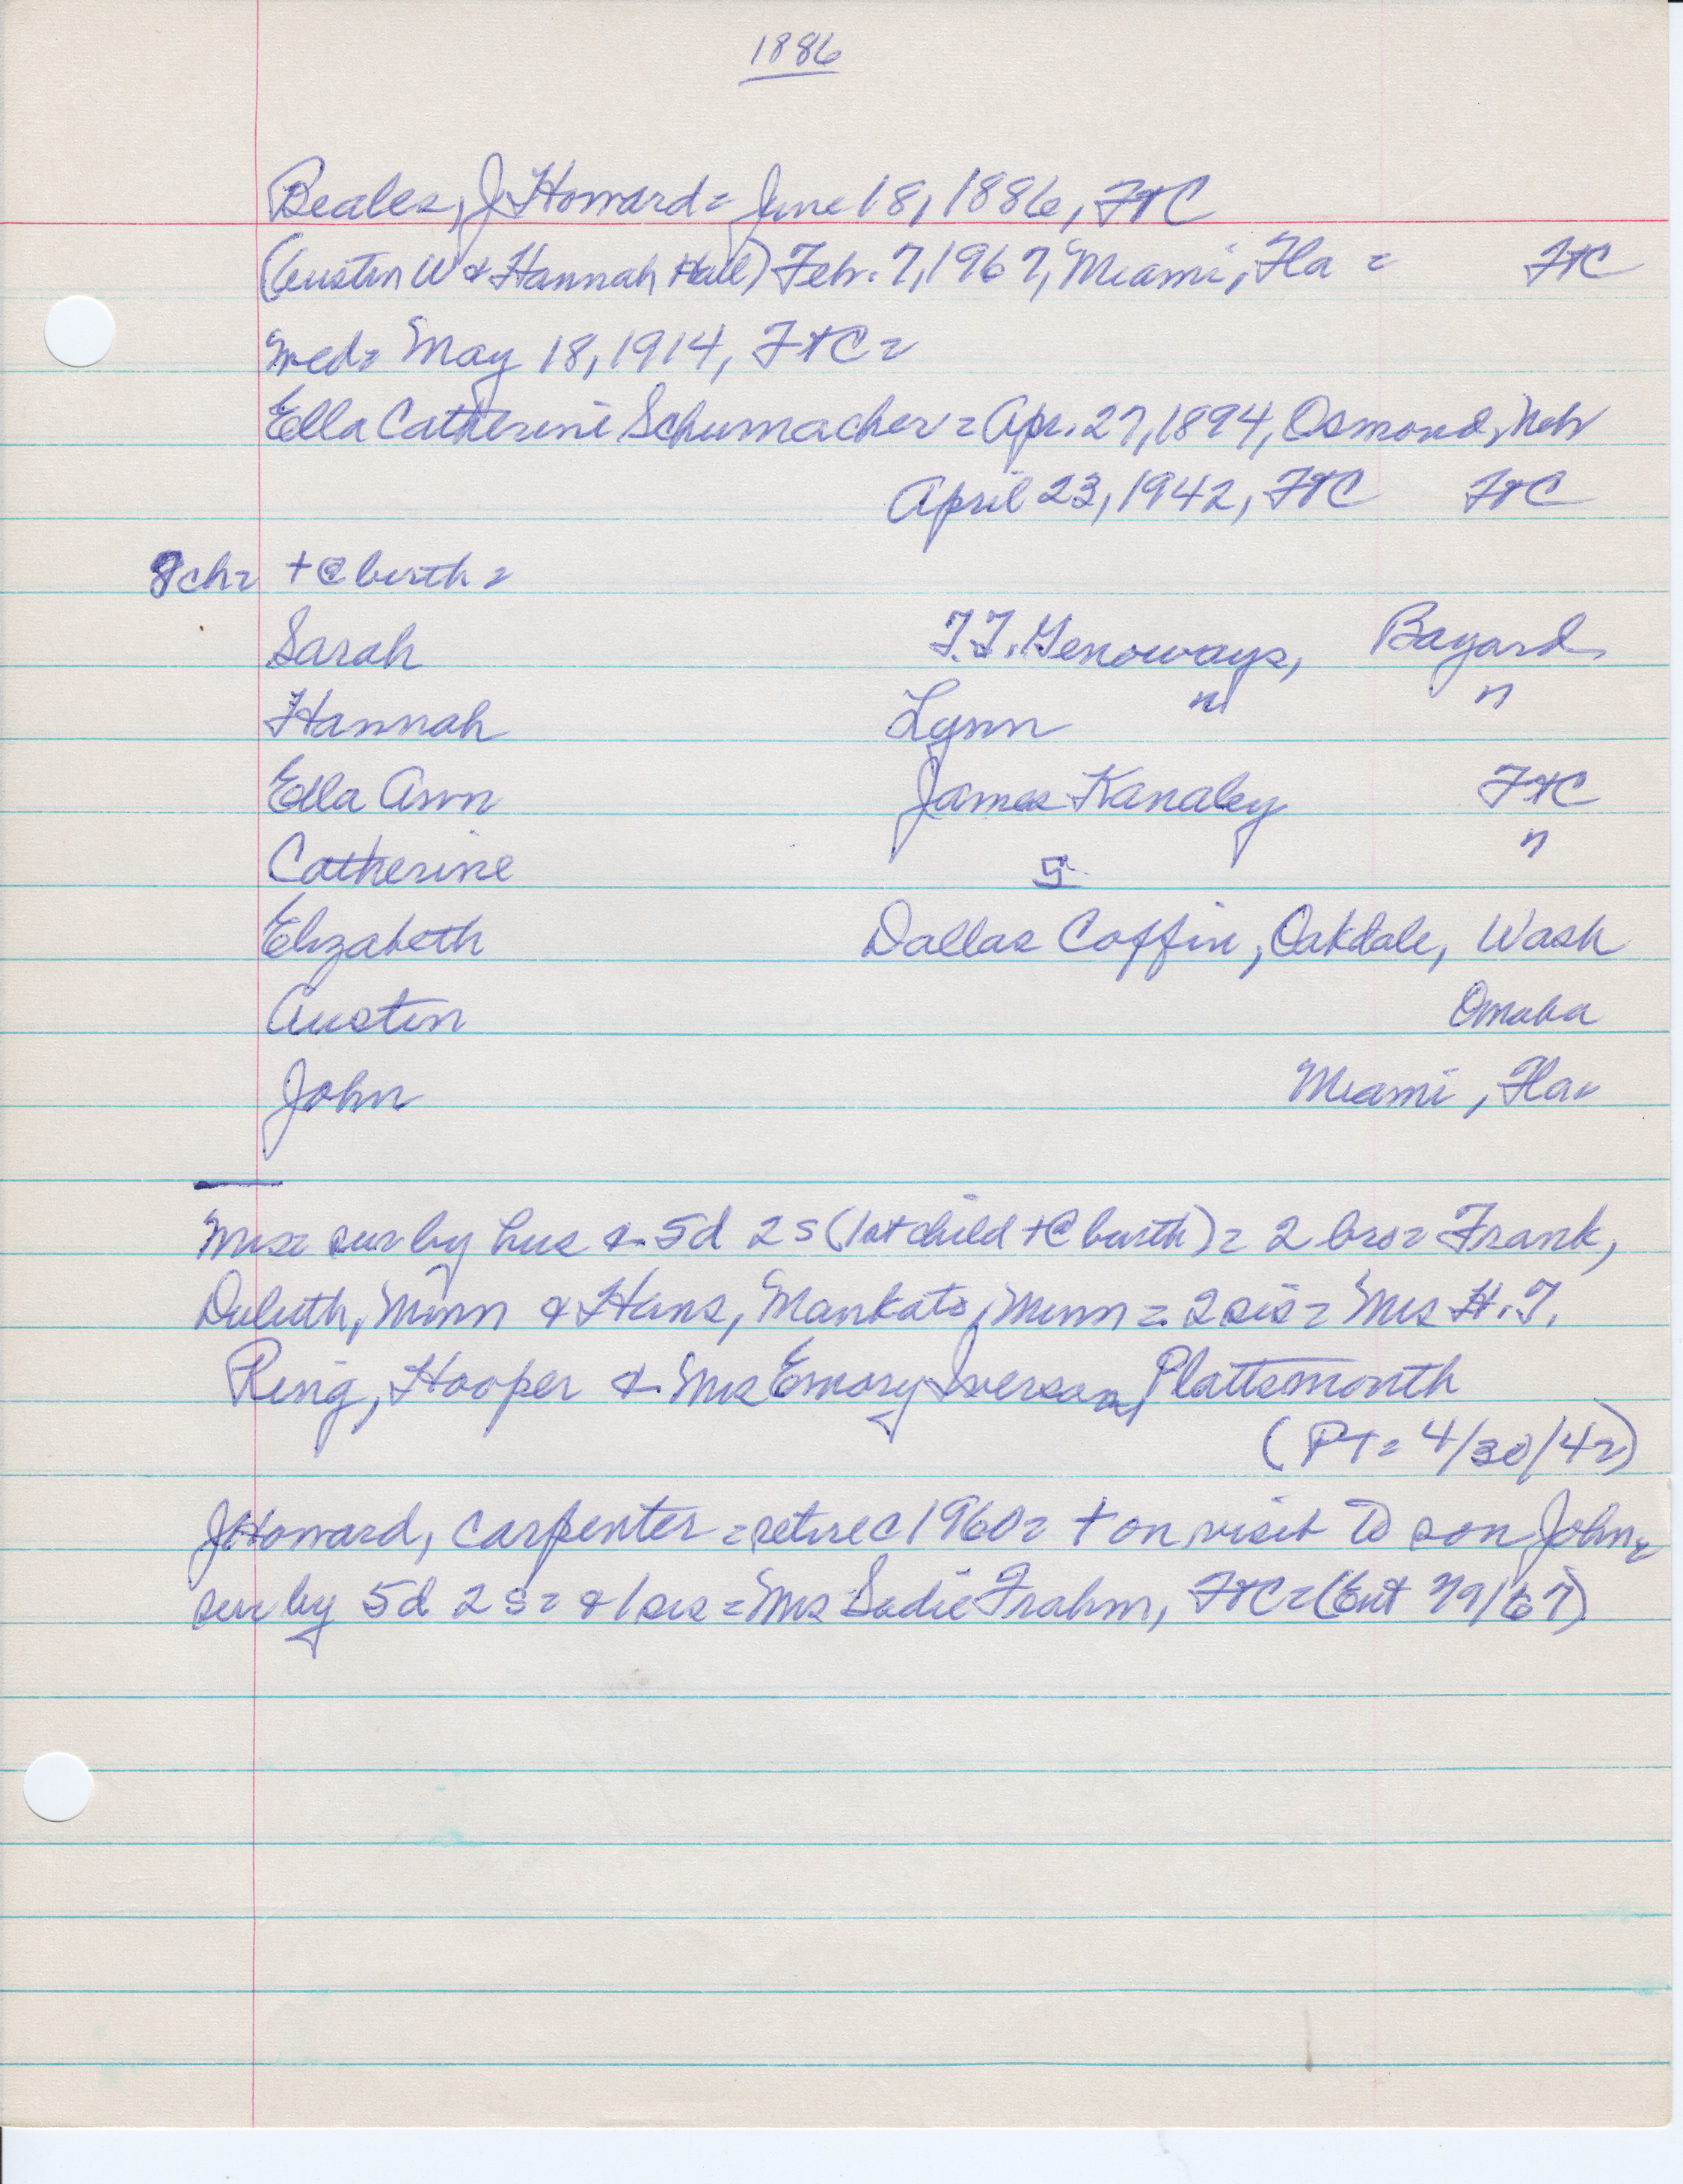 1886
Beales, J Howard = June 18, 1886, FtC
(Austin W & Hannah Hall) Feb. 7, 1967, Miami, Fla = FtC
wed = May 18, 1914, FtC =
Ella Catherine Schumacher = Apr. 27, 1894, Osmond, Neb
April 23, 1942, FtC FtC
8 ch = + @ birth =
Sarah T.T. Genoways, Bayard
Hannah Lynn " "
Ella Ann James Kanaley FtC
Catherine S "
Elizabeth Dallas Coffin, Oakdale, Wash
Austin Omaha
John Miami, Fla =
Mrs = sur by hus & 5d 2s (1st child + @ birth) = 2 bro = Frank,
Duluth, Minn & Hans, Mankato, Minn = 2 sis = Mrs H. T.
Ring, Hooper & Mrs Emory Iverson, Plattsmouth
(PT = 4/30/42)
J Howard, carpenter = retire c 1960 = + on visit to son John =
sur by 5d 2s = & 1 sis = Mrs Sadie Frahm, FtC = (Ent 2/9/67)